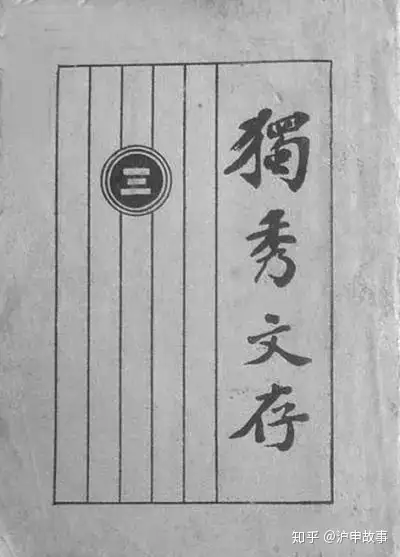 獨秀文存
三
知乎 @沪申故事